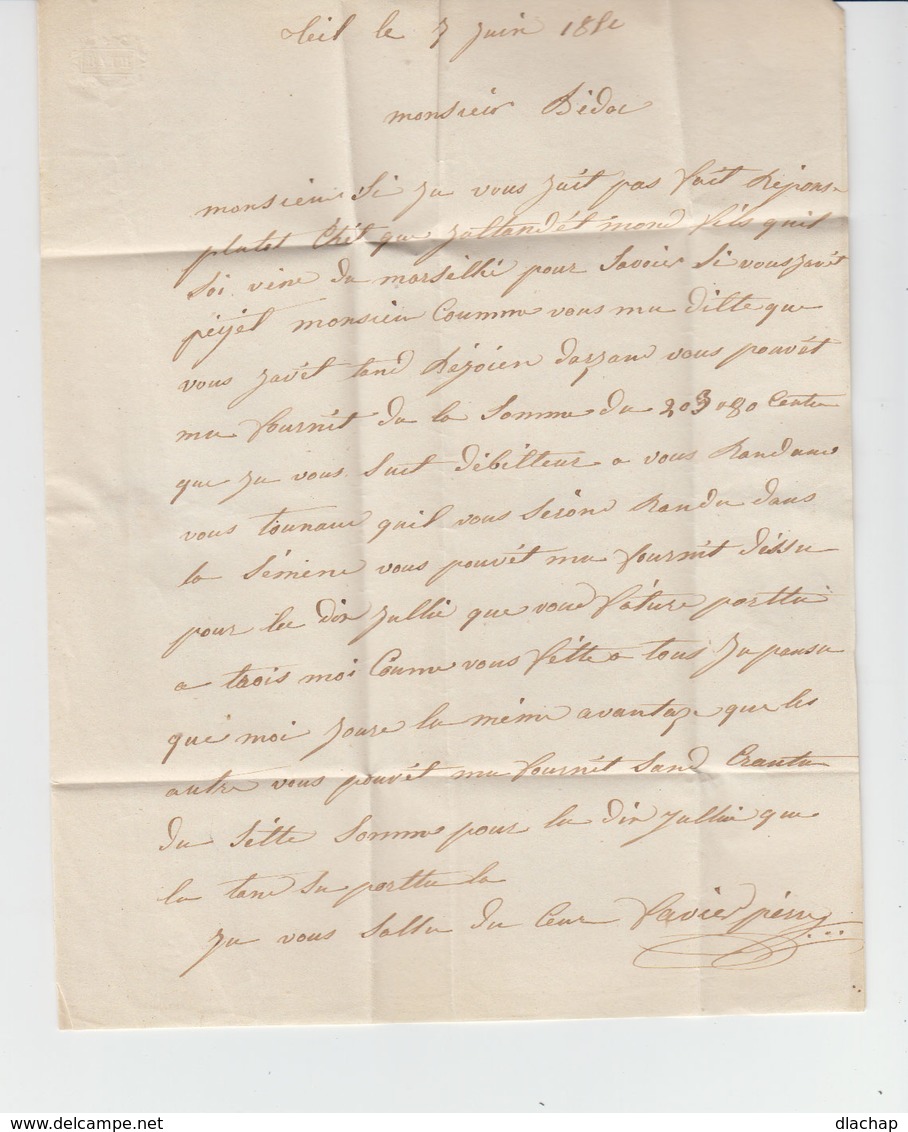 le 7 juin
monsieur Bédoc
monsieur Si Ju vous zait pas fait Répons
plutot Chét que Jattandét mond fils quil
Soi vène du marsellié pour Savoier Si vouszavét
péyét monsieu Coumme vous ma ditte que
vous zavét tand Bézoien darzan vous pouvét
ma fournit du la Somme du 203,80 Centu
que Ju vous Suit débitteur a vous Randan
vous tounau quil vous Sérône Randu dans
la Sémène vous pouvét ma fournit déssu
pour lu dix Jullié que vous fature porttu
a trois moi Coume vous fétte a tous Ju pansu
que moi Joure la même avantaze que les
autre vous pouvét ma fournit Sand Crantu
du Sétte Somme pour lu dix Jullié que
la tane Su porttu la
Ju vous Sallu du Ceur Xavier
dlachap
delcampe.net